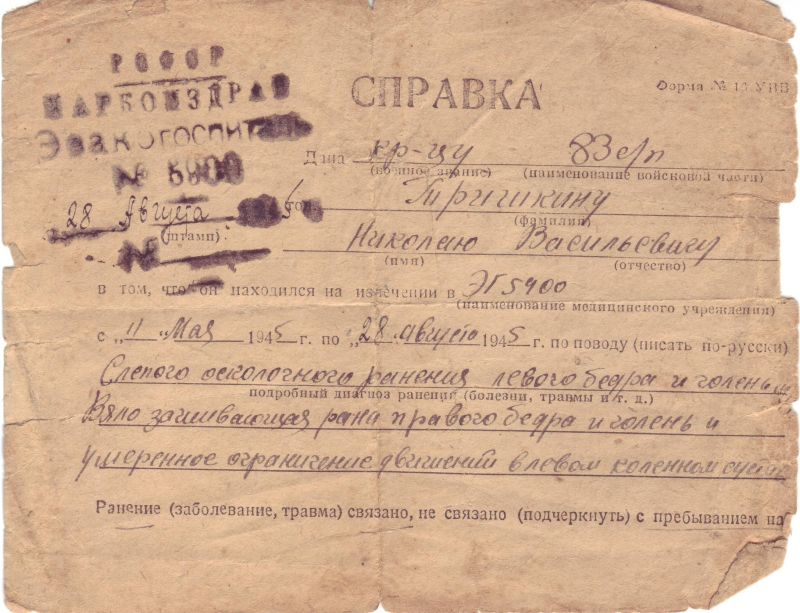 РСФСР
НАРКОМЗДРАВ
СПРАВКА
Форма № 16 УНВ
Эвакогоспиталь
№ 5900
Дана кр-цу 83 с/п
(военное звание) (наименование войсковой части)
28 Августа 5 Тришкину
(штамп) (фамилия)
№
Николаю Васильевичу
(имя) (отчество)
в том, что он находился на излечении в ЭГ 5900
(наименование медицинского учреждения)
с „11 Мая 1945 г. по „28 августа 1945 г. по поводу (писать по-русски)
Слепого осколочного ранения левого бедра и голень
подробный диагноз ранения (болезни, травмы и т. д.)
Вяло заживающая рана правого бедра и голень и
умеренное ограничение движений в левом коленном суста
Ранение (заболевание, травма) связано, не связано (подчеркнуть) с пребыванием на